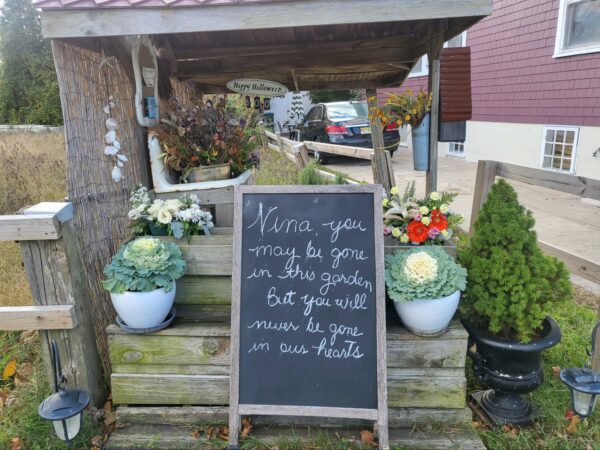 Happy Halloween
"Nina", you
may be gone
in this garden
but you will
never be gone
in our hearts